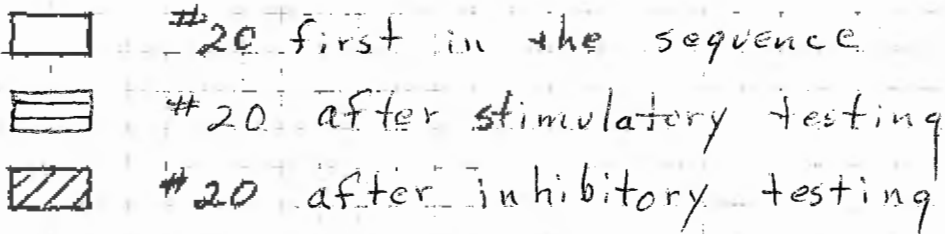 #20 first in the sequence
#20 after stimulatory testing
#20 after inhibitory testing